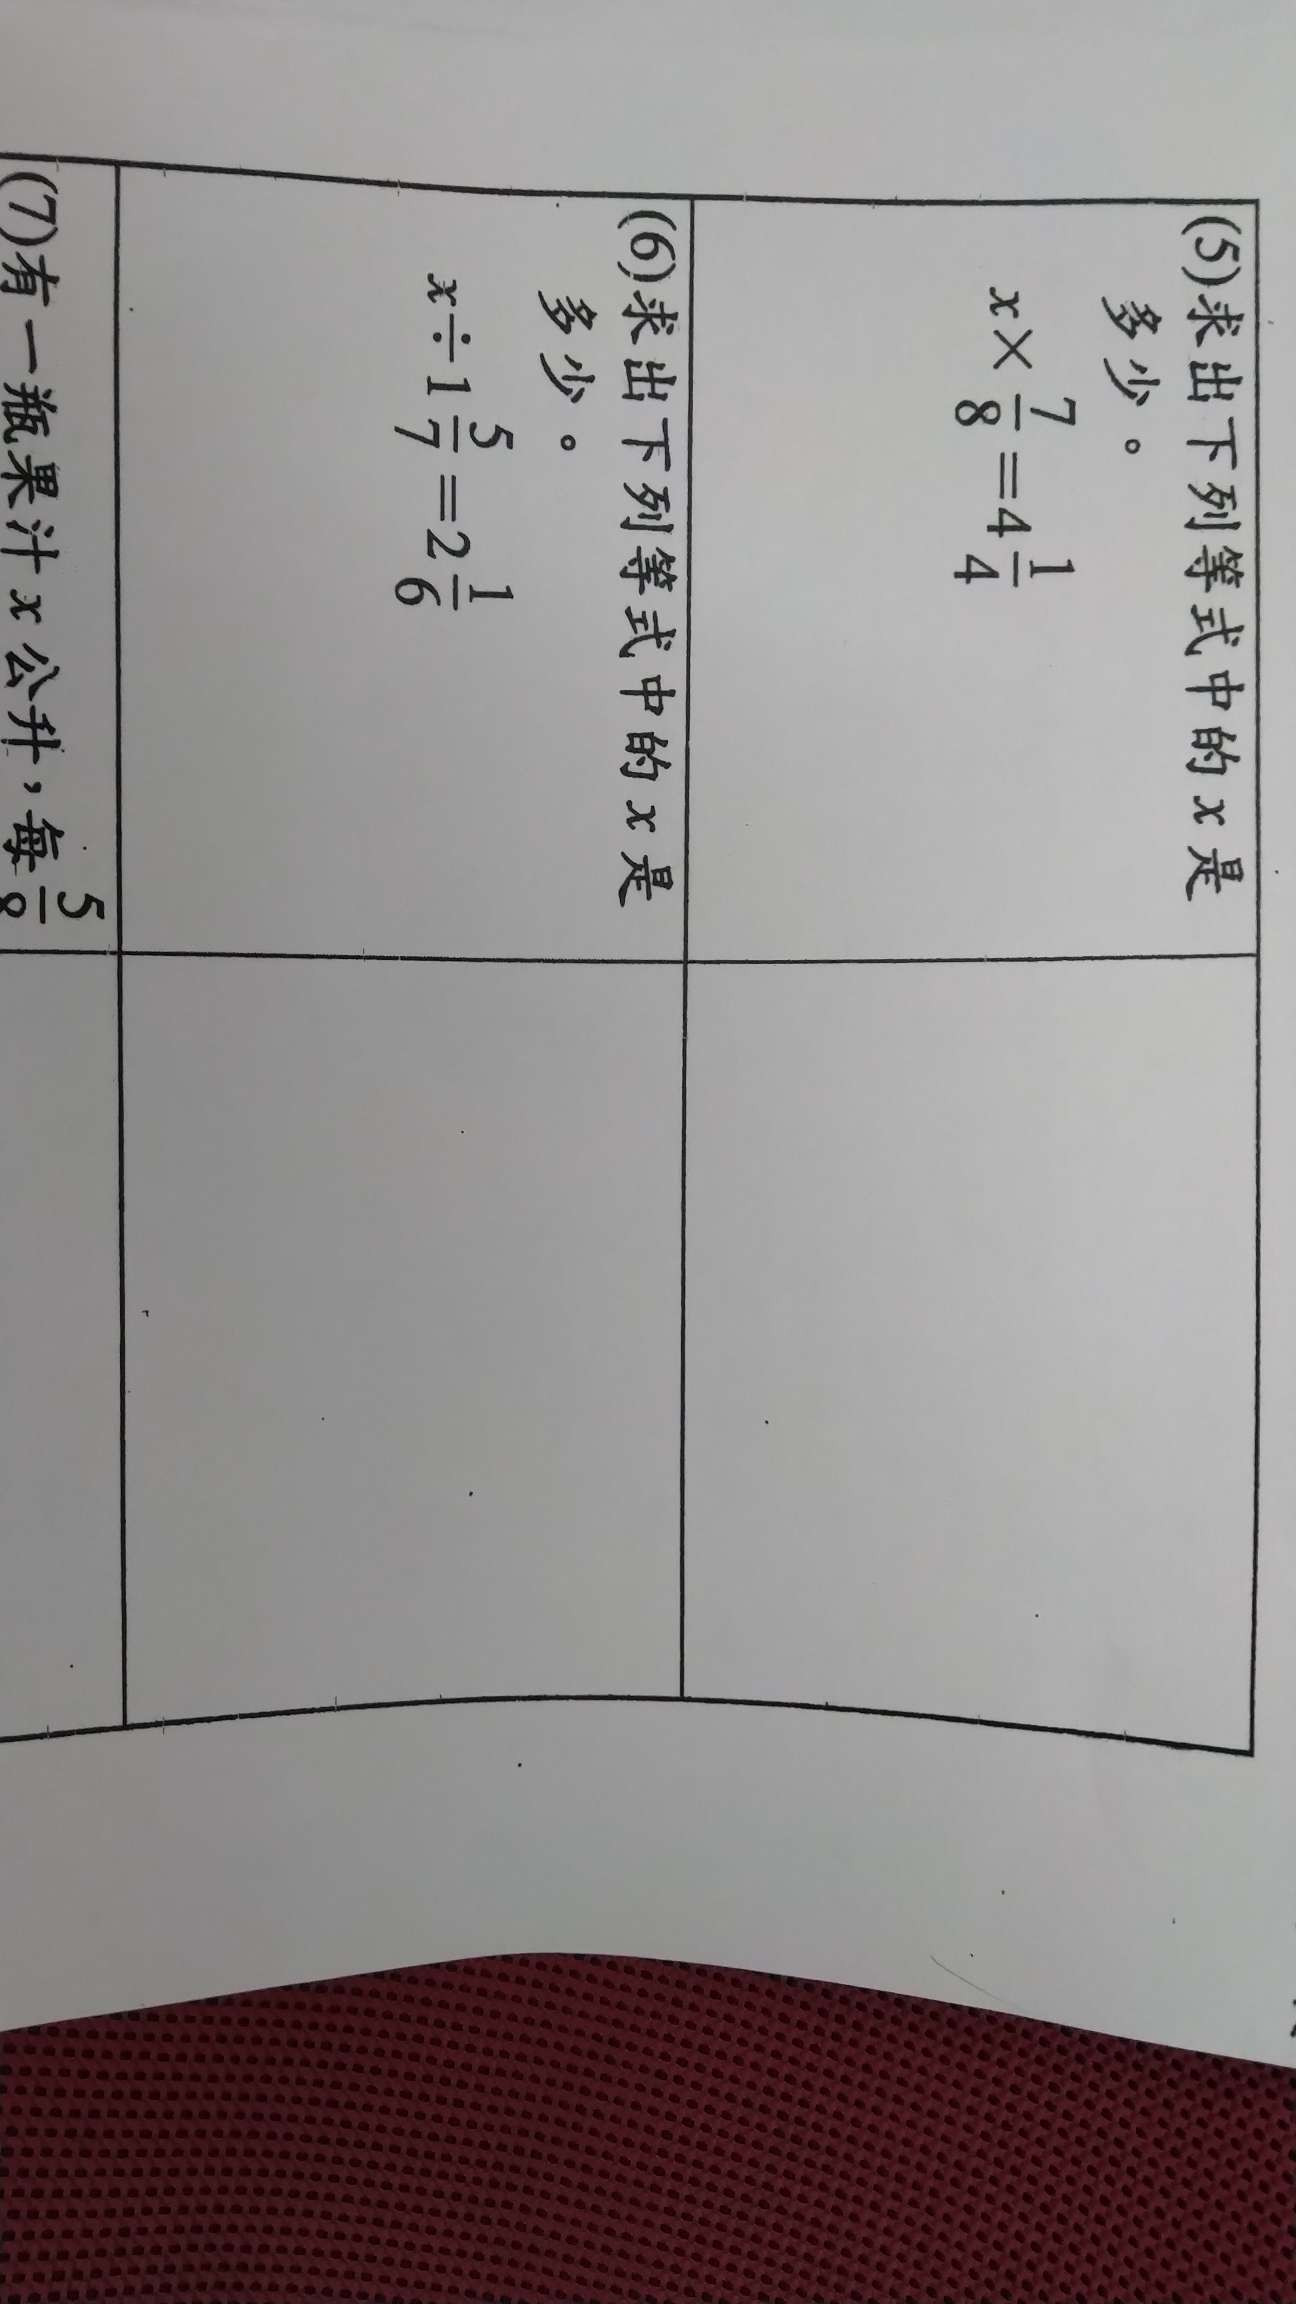 (5)求出下列等式中的x是
多少。
x×7/8=4 1/4
(6)求出下列等式中的x是
多少。
x÷1 5/7=2 1/6
(7)有一瓶果汁x公升，每5/8